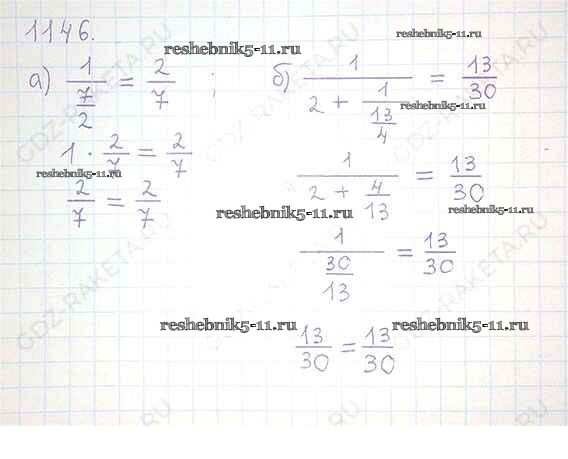 1146.
reshebnik5-11.ru
reshebnik5-11.ru
а) 1/(7/2) = 2/7 ;
б) 1/(2 + 1/(13/4)) = 13/30
reshebnik5-11.ru
1 · 2/7 = 2/7
1/(2 + 4/13) = 13/30
reshebnik5-11.ru
2/7 = 2/7
reshebnik5-11.ru
reshebnik5-11.ru
1/(30/13) = 13/30
reshebnik5-11.ru
reshebnik5-11.ru
13/30 = 13/30
GDZ-RAKETA.RU
GDZ-RAKETA.RU
GDZ-RAKETA.RU
GDZ-RAKETA.RU